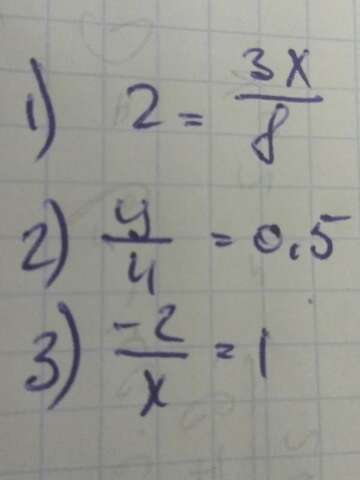 1) 2 = 3x/8
2) y/4 = 0.5
3) -2/x = 1